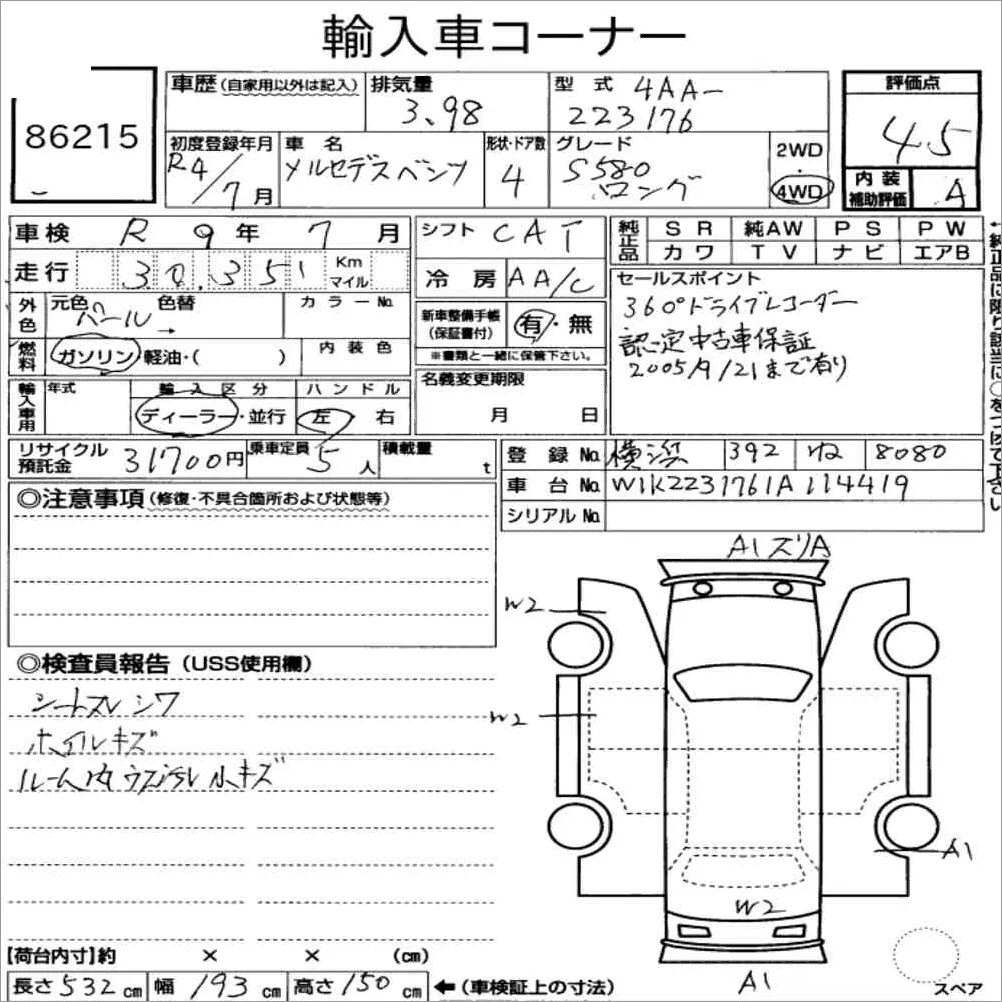 輸入車コーナー
86215
車歴(自家用以外は記入) 排気量 3.98 型式 4AA-
223176
評価点 4.5
初度登録年月 R4/7月 車名 メルセデスベンツ 形状・ドア数 4 グレード S580 ロング 2WD・4WD
内装補助評価 A
車検 R 9年 7月
シフト CAT
純正品 SR 純AW PS PW
カワ TV ナビ エアB
走行 30,351 Km マイル
冷房 AA/C
セールスポイント
360°ドライブレコーダー
認定中古車保証
2005/9/21まで有り
外色 元色 パール 色替→ カラーNo.
新車整備手帳(保証書付) 有・無
※書類と一緒に保管下さい。
燃料 ガソリン・軽油・( ) 内装色
輸入車用 年式 輸入区分 ディーラー・並行 ハンドル 左 右
名義変更期限
月 日
リサイクル預託金 31700円 乗車定員 5人 積載量 t
登録No. 横浜 392 ね 8080
車台No. W1K2231761A114419
シリアルNo.
◎注意事項(修復・不具合箇所および状態等)
A1 ズリA
W2
◎検査員報告(USS使用欄)
シートスレ シワ
W2
ホイルキズ
ルーム内 ウスヨゴレ 小キズ
A1
W2
【荷台内寸】約 × × (cm)
長さ532cm 幅193cm 高さ150cm ←(車検証上の寸法)
A1
スペア